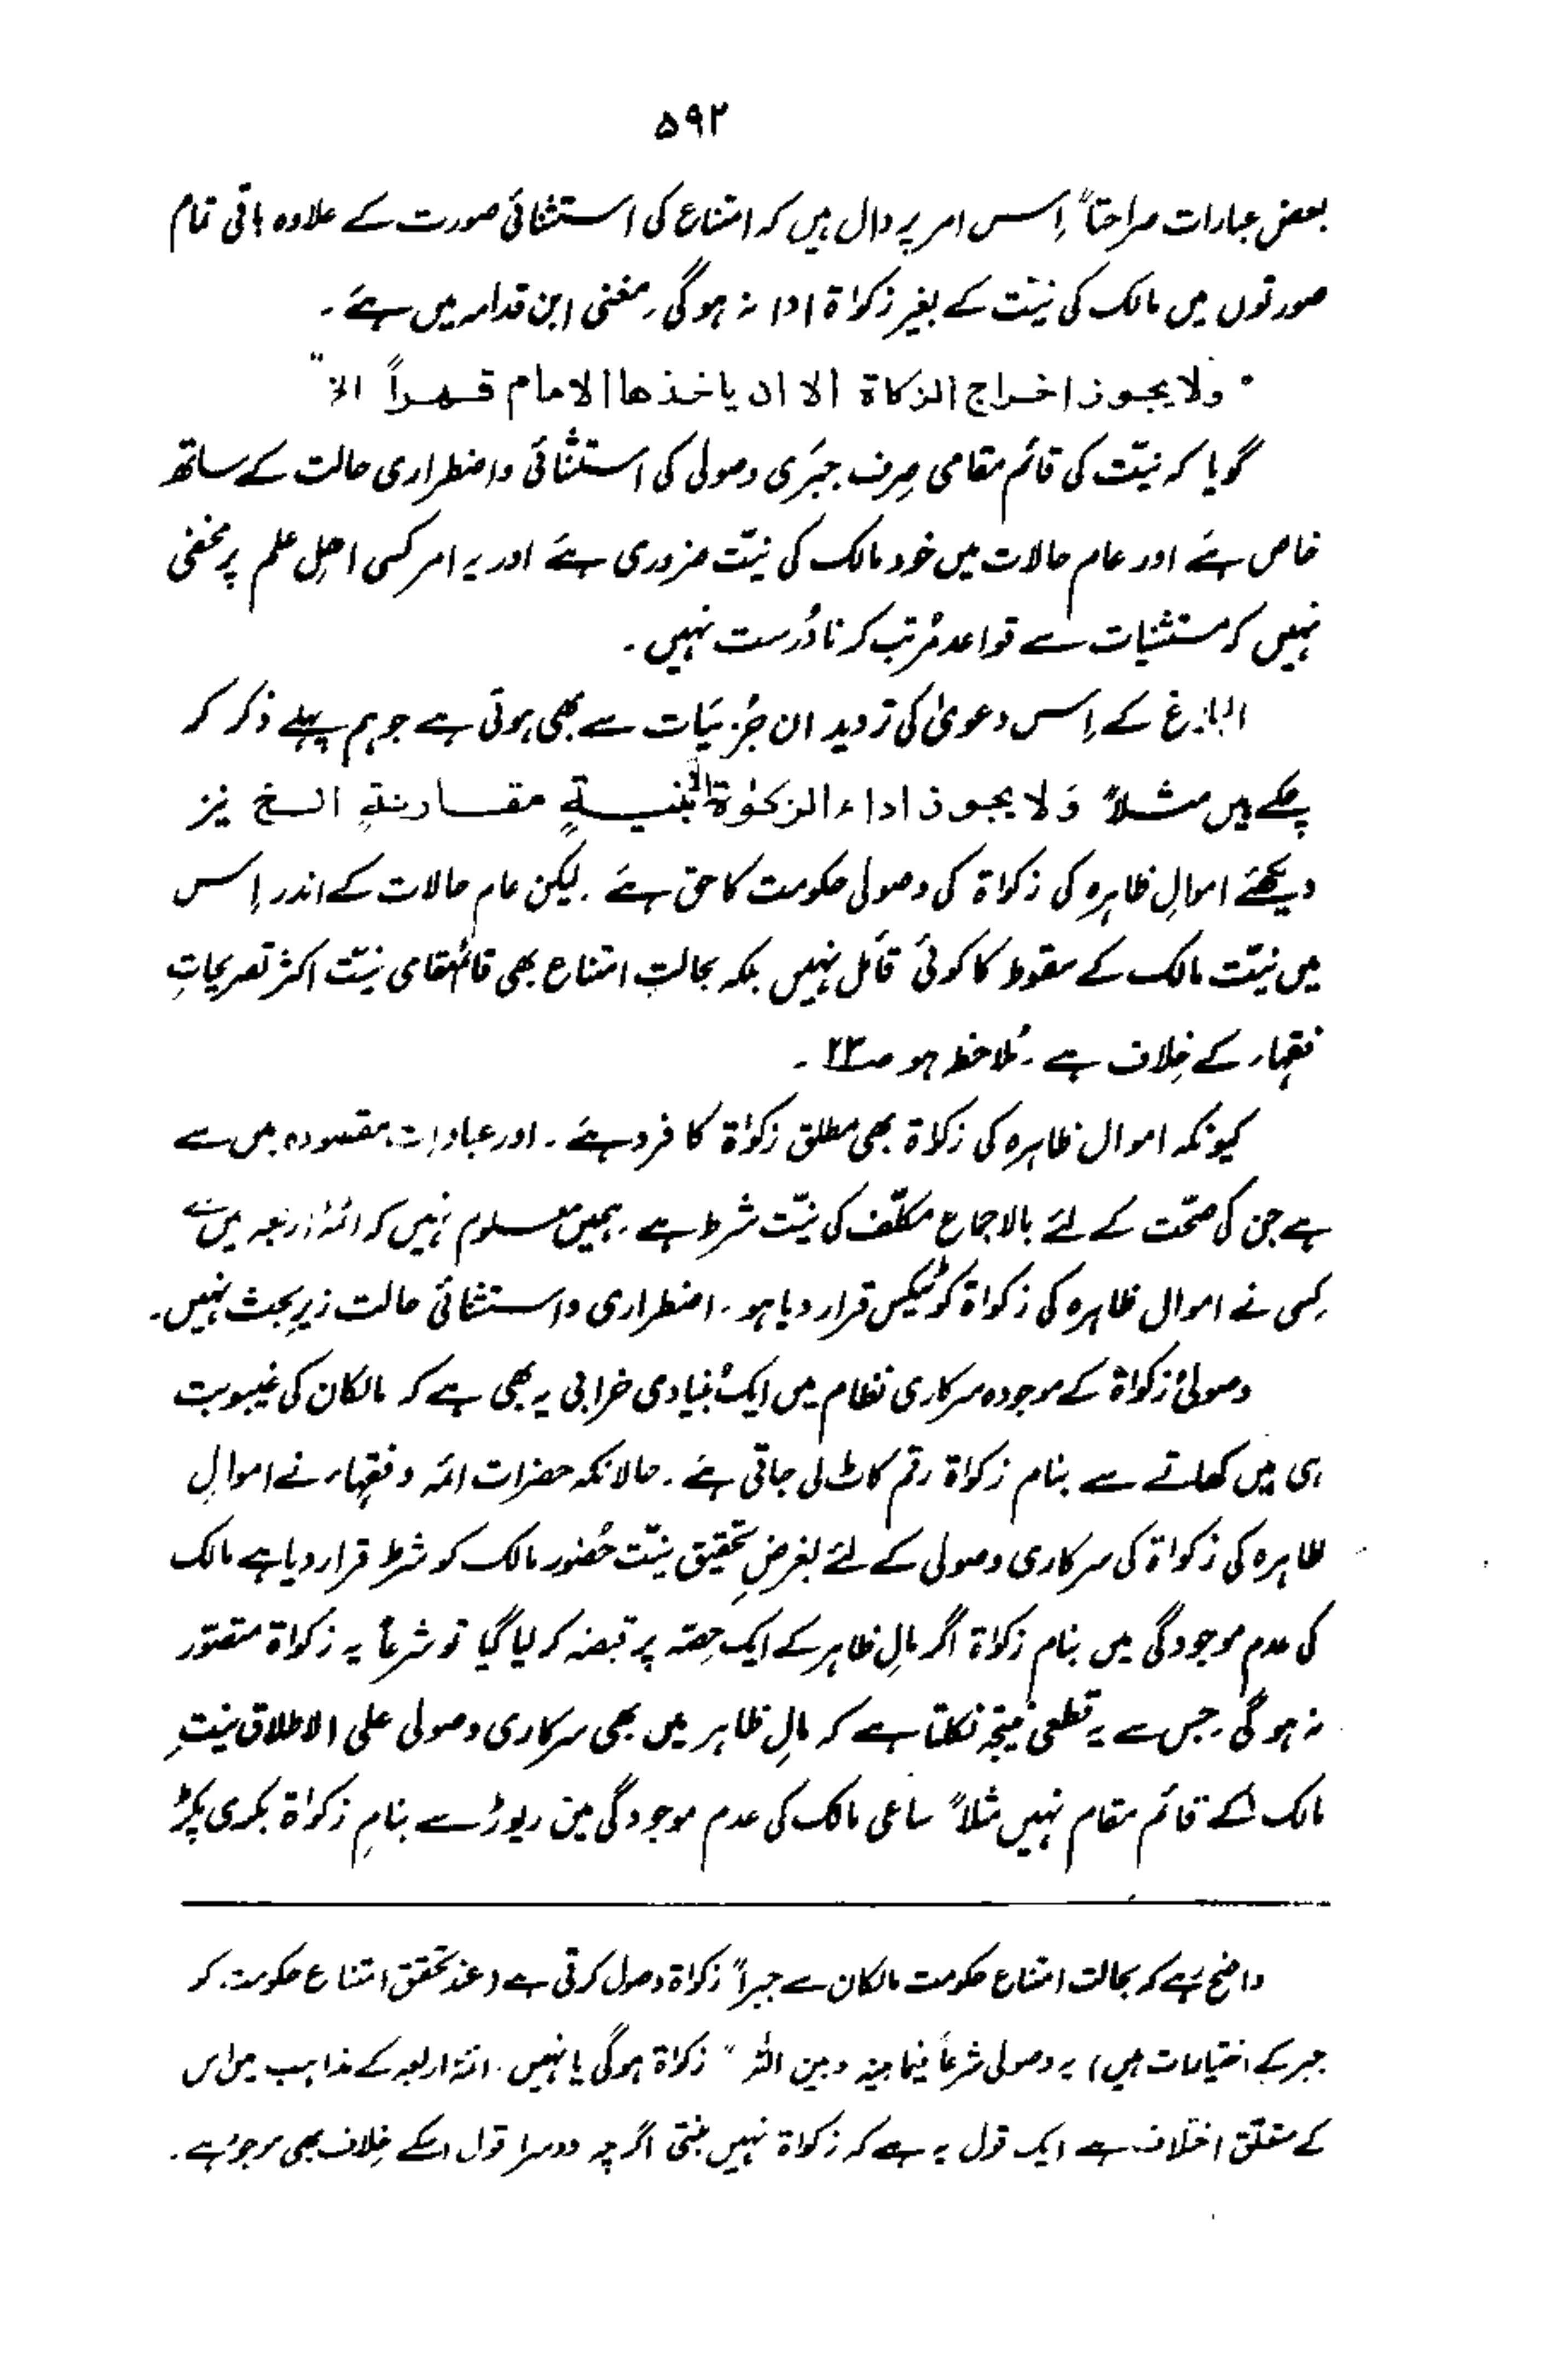 ۵۹۲
بعض عبارات صراحتاً اِس امر پر دال ہیں کہ امتناع کی استثنائی صورت کے علاوہ باقی تمام
صورتوں میں مالک کی نیّت کے بغیر زکواۃ ادا نہ ہوگی۔ مغنی ابن قدامہ میں ہے۔
"ولا یجوز اخراج الزکاۃ الا ان یاخذھا الامام قھراً الا"
گویا کہ نیّت کی قائم مقامی صرف جبری وصولی کی استثنائی واضطراری حالت کے ساتھ
خاص ہے اور عام حالات میں خود مالک کی نیّت ضروری ہے اور یہ امر کسی اھلِ علم پر مخفی
نہیں کہ مستثنیات سے قواعد مُرتب کرنا دُرست نہیں۔
البلاغ کے اِس دعویٰ کی تردید ان جُزئیات سے بھی ہوتی ہے جو ہم پہلے ذکر کر
چکے ہیں مثلاً وَلا یجوز اداء الزکوٰۃ الا بنیۃٍ مقارنۃٍ الخ نیز
دیکھئے اموالِ ظاہرہ کی زکواۃ کی وصولی حکومت کا حق ہے۔ لیکن عام حالات کے اندر اِس
میں نیّت مالک کے سقوط کا کوئی قائل نہیں بلکہ بحالتِ امتناع بھی قائمقامی نیّت اکثر تصریحاتِ
فقہاء کے خِلاف ہے۔ مُلاحظہ ہو صـ۲۳۔
کیونکہ اموال ظاہرہ کی زکواۃ بھی مطلق زکوٰۃ کا فرد ہے۔ اور عبادات مقصودہ میں سے
ہے جن کی صحّت کے لئے بالاجماع مکلّف کی نیّت شرط ہے۔ ہمیں معلوم نہیں کہ ائمہ اربعہ میں سے
کسی نے اموال ظاہرہ کی زکواۃ کو ٹیکس قرار دیا ہو۔ اضطراری واستثنائی حالت زیرِ بحث نہیں۔
وصولیٔ زکواۃ کے موجودہ سرکاری نظام میں ایک بُنیادی خرابی یہ بھی ہے کہ مالکان کی غیبوبت
ہی میں کھاتے سے بنام زکواۃ رقم کاٹ لی جاتی ہے۔ حالانکہ حضرات ائمہ وفقہاء نے اموالِ
ظاہرہ کی زکواۃ کی سرکاری وصولی کے لئے بغرضِ تحقیق نیّت حُضور مالک کو شرط قرار دیا ہے مالک
کی عدم موجودگی میں بنام زکواۃ اگر مالِ ظاہر کے ایک حِصّہ پر قبضہ کر لیا گیا تو شرعاً یہ زکواۃ متصّور
نہ ہوگی۔ جس سے یہ قطعی نتیجہ نکلتا ہے کہ مالِ ظاہر میں بھی سرکاری وصولی علی الاطلاق نیتِ
مالک کے قائم مقام نہیں مثلاً ساعی مالک کی عدم موجودگی میں ریوڑ سے بنامِ زکوٰۃ بکری پکڑ
واضح رہے کہ بحالت امتناع حکومت مالکان سے جبراً زکواۃ وصول کرتی ہے (عند تحقق امتناع حکومت کو
جبر کے اختیارات ہیں) یہ وصولی شرعاً فیما بینہ وبین اللہ" زکواۃ ہوگی یا نہیں۔ ائمہ اربعہ کے مذاہب میں اس
کے متعلّق اختلاف ہے ایک قول یہ ہے کہ زکواۃ نہیں بنتی اگرچہ دوسرا قول اسکے خِلاف بھی موجود ہے۔